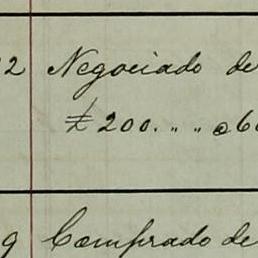 2 Negociado de
£ 200. " " a 6
9 Comprado de